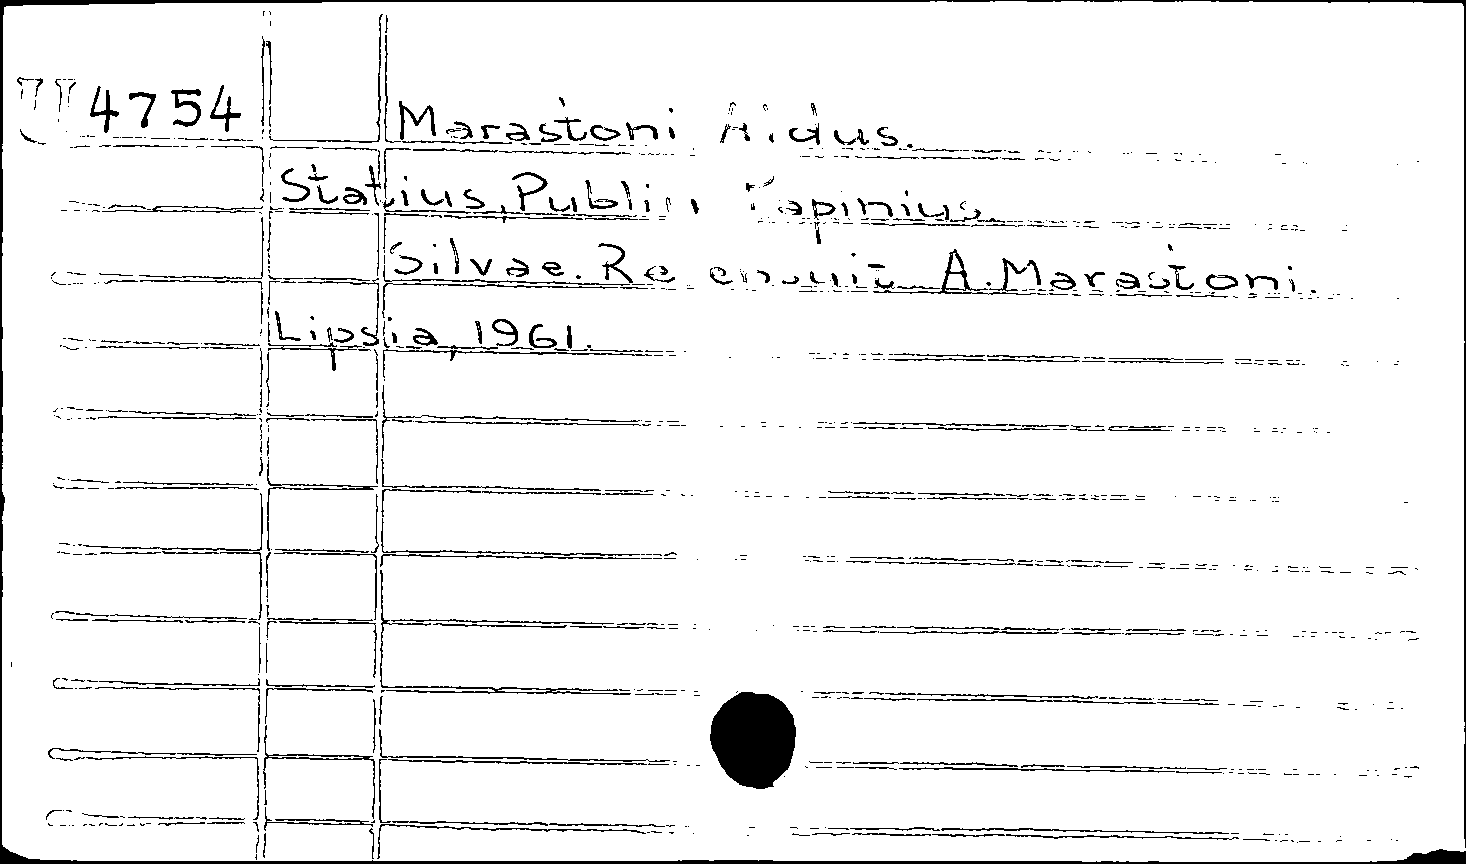 U 4754 Marastoni Aldus.
Statius, Publius Papinius.
Silvae. Recensuit A. Marastoni.
Lipsia, 1961.